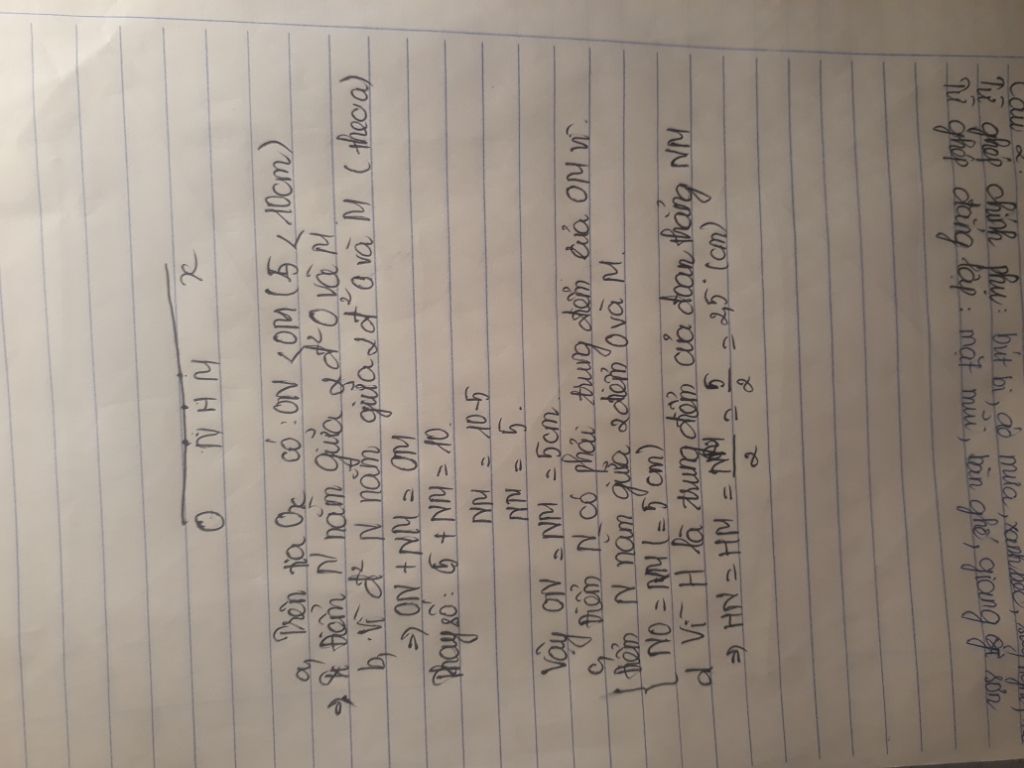 O N H M x
a, Trên tia Ox có: ON < OM (5 < 10cm)
⇒ Điểm N nằm giữa 2 đ' O và M
b, Vì đ' N nằm giữa 2 đ' O và M (theo a)
⇒ ON + NM = OM
Thay số: 5 + NM = 10
NM = 10-5
NM = 5.
Vậy ON = NM = 5cm
c, Điểm N có phải trung điểm của OM vì.
Điểm N nằm giữa 2 điểm O và M.
NO = NM (= 5cm)
d Vì H là trung điểm của đoan thẳng NM
⇒ HN = HM = NM/2 = 5/2 = 2,5 (cm)
Câu 2:
Từ ghép chính phụ: bút bi, áo mưa, xanh lè,
Từ ghép đẳng lập: mặt mũi, bàn ghế, giang sơn